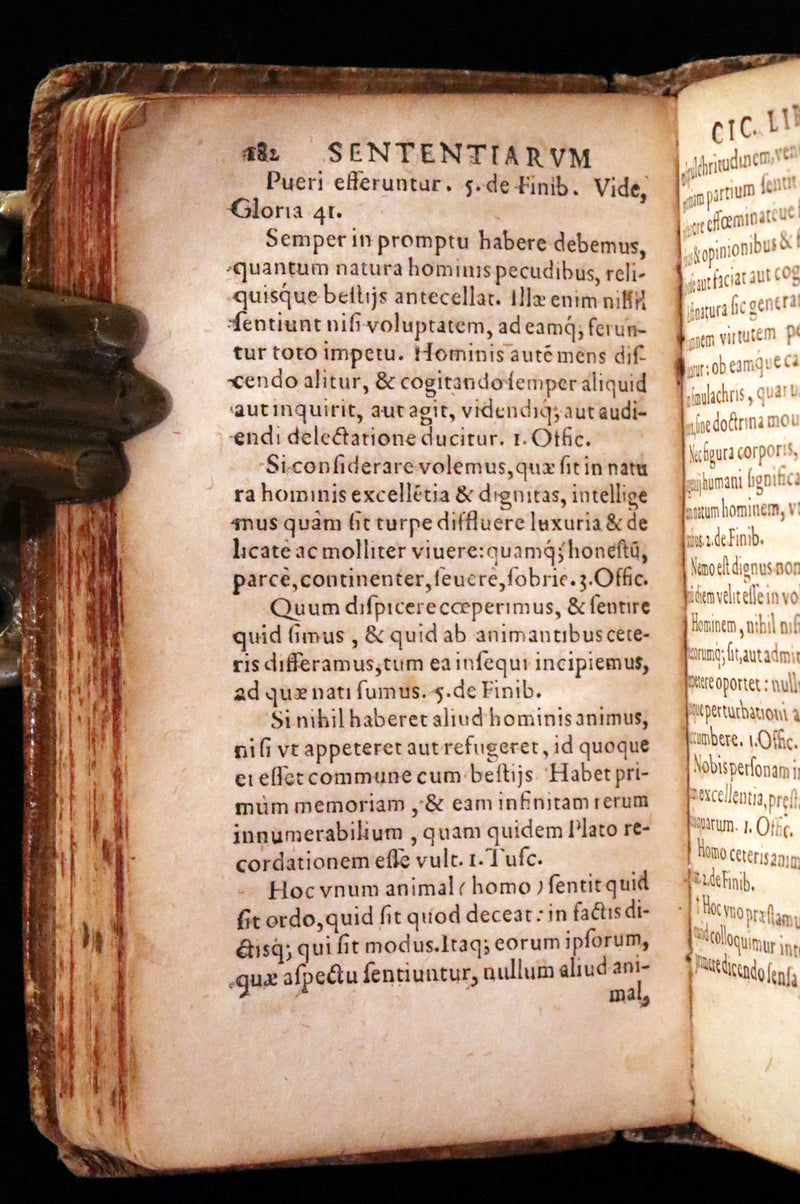 182 SENTENTIARVM
Pueri efferuntur. 5. de Finib. Vide,
Gloria 41.
Semper in promptu habere debemus,
quantum natura hominis pecudibus, reli-
quisque bestijs antecellat. Illæ enim nihil
sentiunt nisi voluptatem, ad eamq; ferun-
tur toto impetu. Hominis autē mens dis-
cendo alitur, & cogitando semper aliquid
aut inquirit, aut agit, videndiq; aut audi-
endi delectatione ducitur. 1. Offic.
Si considerare volemus, quæ sit in natu
ra hominis excellētia & dignitas, intellige
mus quàm sit turpe diffluere luxuria & de
licatè ac molliter viuere: quamq; honestū,
parcè, continenter, seuerè, sobriè. 3. Offic.
Quum dispicere cœperimus, & sentire
quid simus, & quid ab animantibus cete-
ris differamus, tum ea insequi incipiemus,
ad quæ nati sumus. 5. de Finib.
Si nihil haberet aliud hominis animus,
nisi vt appeteret aut refugeret, id quoque
ei esset commune cum bestijs Habet pri-
mùm memoriam, & eam infinitam rerum
innumerabilium, quam quidem Plato re-
cordationem esse vult. 1. Tusc.
Hoc vnum animal (homo) sentit quid
sit ordo, quid sit quod deceat: in factis di-
ctisq; qui sit modus. Itaq; eorum ipsorum,
quæ aspectu sentiuntur, nullum aliud ani-
mal,
CIC. LI
partium senti
& opinionibus &
aut faciat aut cog
natura sic genera
virtutem
: ob eamque ca
simulachris, quaru
sine doctrina mou
Nec figura corporis,
humani significa
natum hominem, v
2. de Finib.
Nemo est dignus non
diem velit esse in vo
Hominem, nihil nisi
sit, aut admi
oportet: null
perturbationi a
cumbere. 1. Offic.
Nobis personam i
excellentia, præst
1. Offic.
Homo ceteris anim
2. de Finib.
Hoc vno præstamu
colloquimur int
dicendo sensa